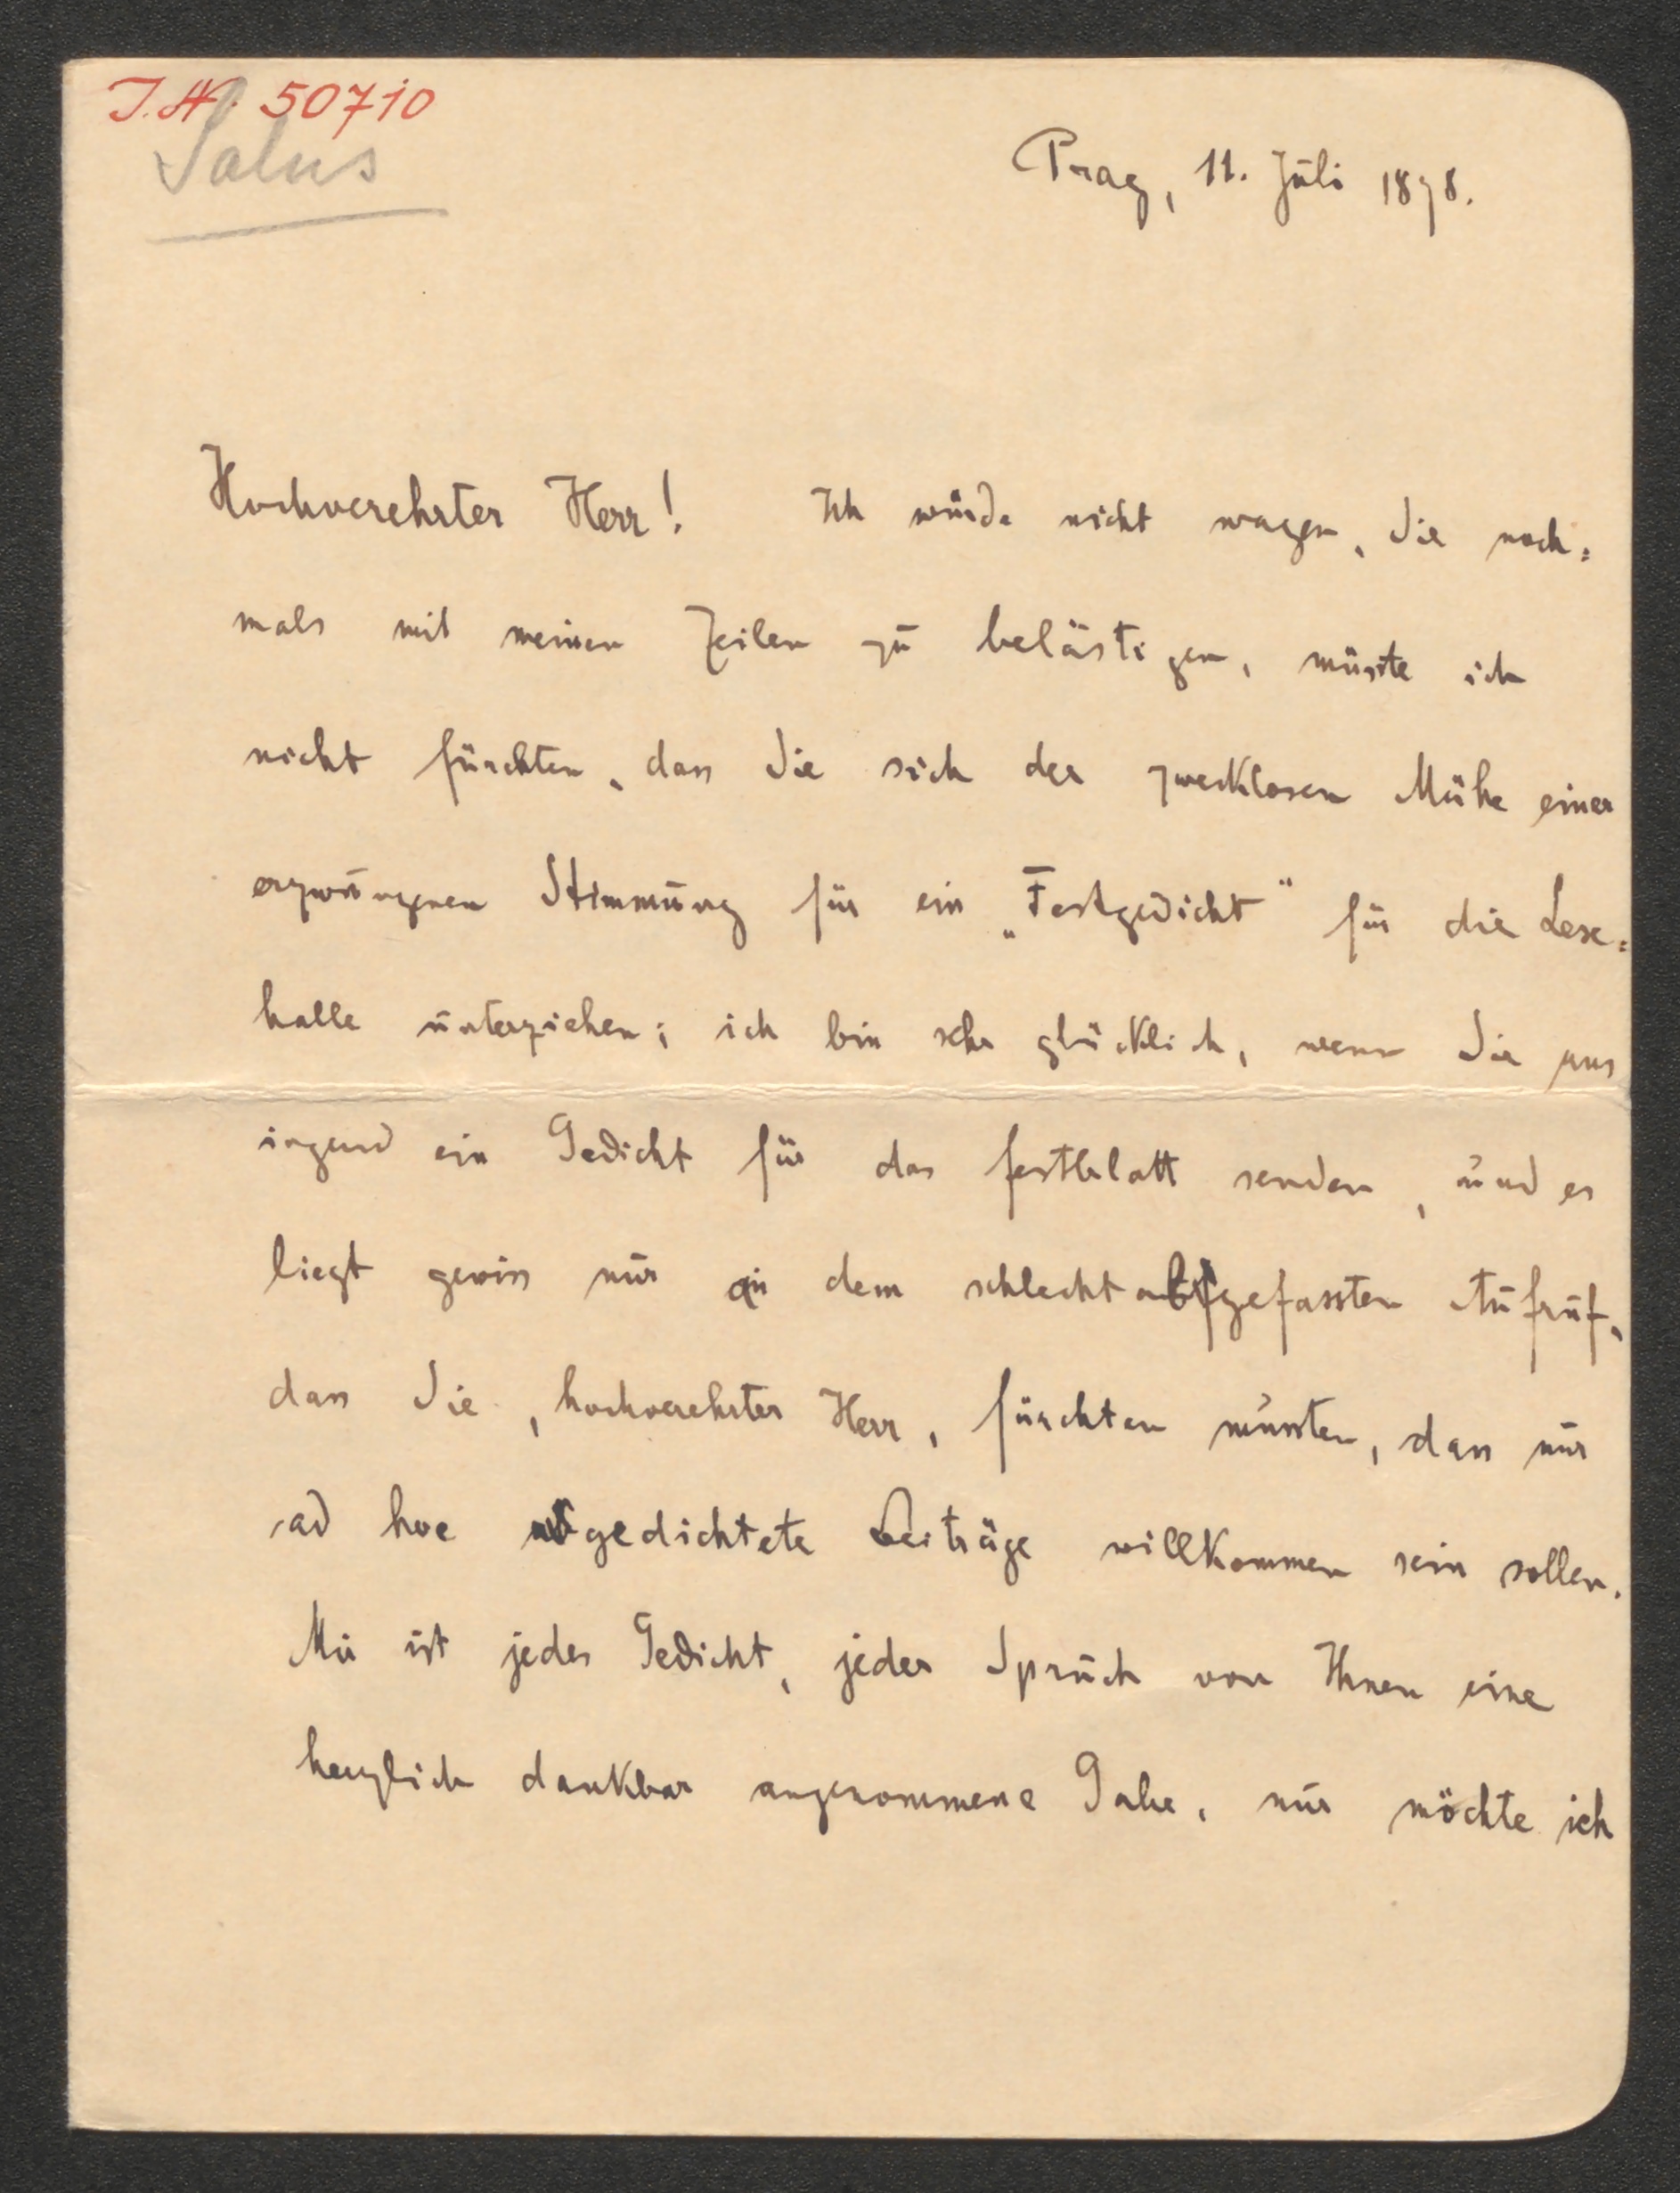 J.N. 50710
Salus
Prag, 11. Juli 1898.
Hochverehrter Herr! Ich würde nicht wagen, Sie noch=
mals mit meinen Zeilen zu belästigen, müsste ich
nicht fürchten, dass Sie sich der zwecklosen Mühe einer
erzwungenen Stimmung für ein „Festgedicht“ für die Lese=
halle unterziehen; ich bin sehr glücklich, wenn Sie uns
irgend ein Gedicht für das Festblatt senden, und es
liegt gewiss nur an dem schlecht abgefassten Aufruf,
dass Sie, hochverehrter Herr, fürchten mussten, dass nur
ad hoc gedichtete Beiträge willkommen sein sollen.
Mir ist jedes Gedicht, jeder Spruch von Ihnen eine
herzlich dankbar angenommene Gabe, nur möchte ich